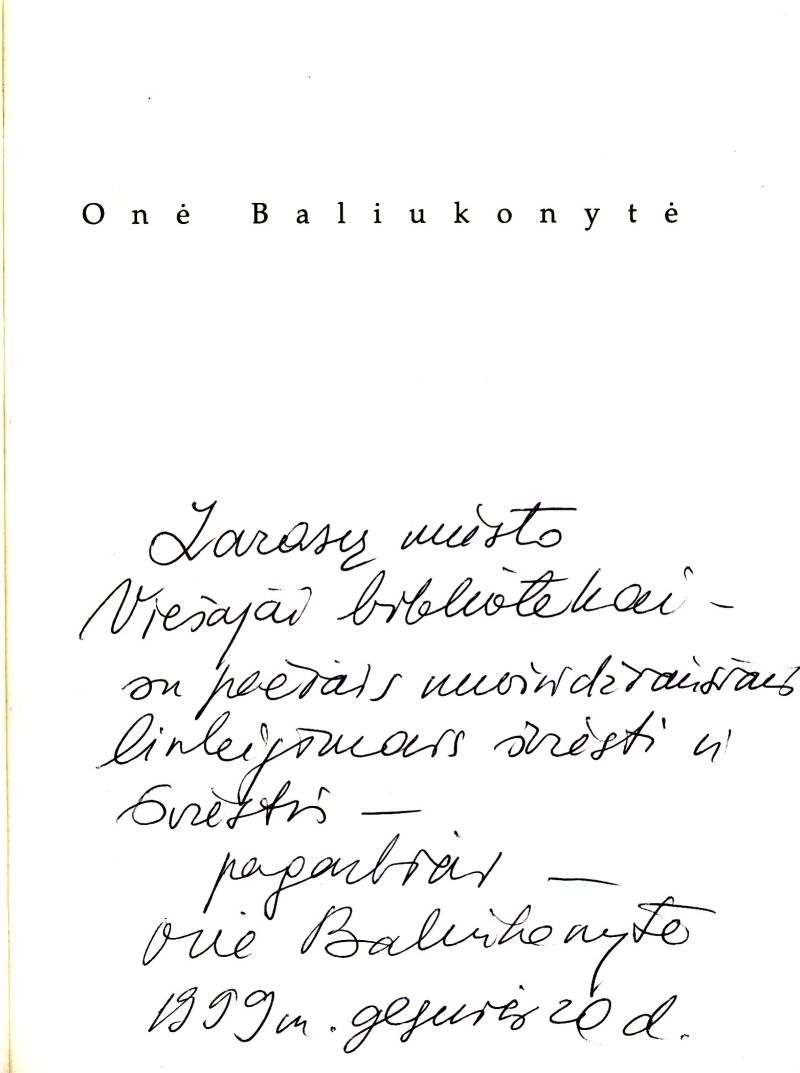 Onė Baliukonytė
Zarasų miesto
Viešajai bibliotekai –
su pačiais nuoširdžiausiais
linkėjimais šviesti ir
šviestis —
pagarbiai —
Onė Baliukonytė
1999 m. gegužės 20 d.